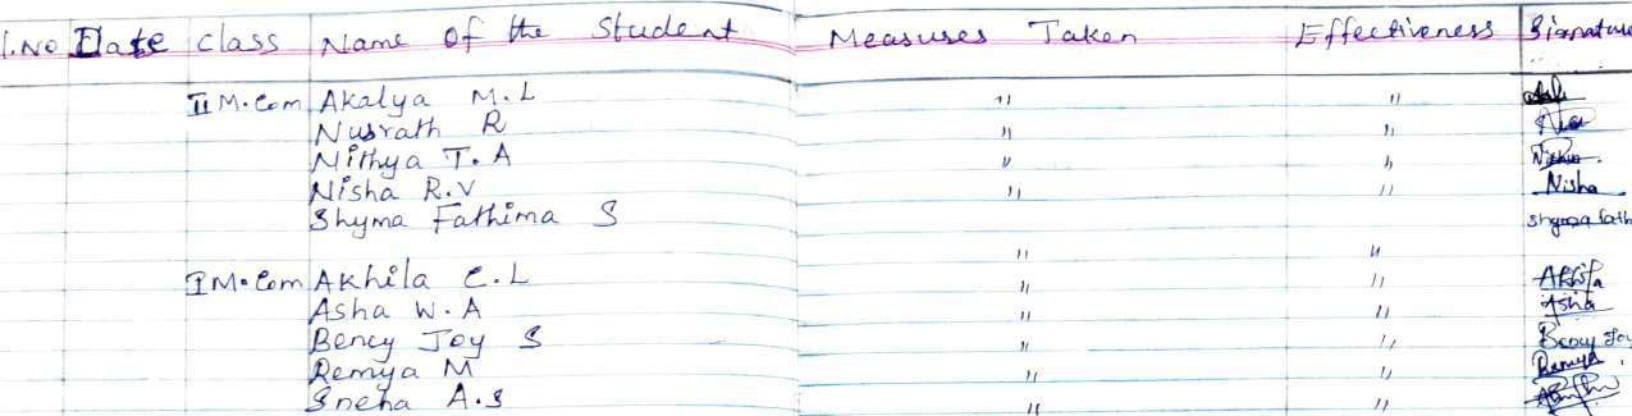 l.No Date class Name of the Student Measures Taken Effectiveness Signature
II M.Com Akalya M.L " "
Nusrath R " "
Nithya T.A " "
Nisha R.V " " Nisha
Shyma Fathima S Shyma fath
" "
I M.Com Akhila C.L " " Akhila
Asha W.A " " Asha
Bency Joy S " " Bency Joy
Remya M " " Remya
Sneha A.S " "